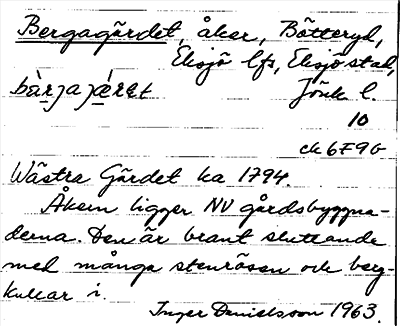 Bergagärdet, åker, Bötteryd,
Eksjö lfs, Eksjö stad,
bàrja jæ̀ret
Jönk. l.
10
ek 6F9b
Wästra Gärdet ka 1794.
Åkern ligger NV gårdsbyggna-
derna. Den är brant sluttande
med många stenrösen och berg-
kullar i.
Inger Danielsson 1963.